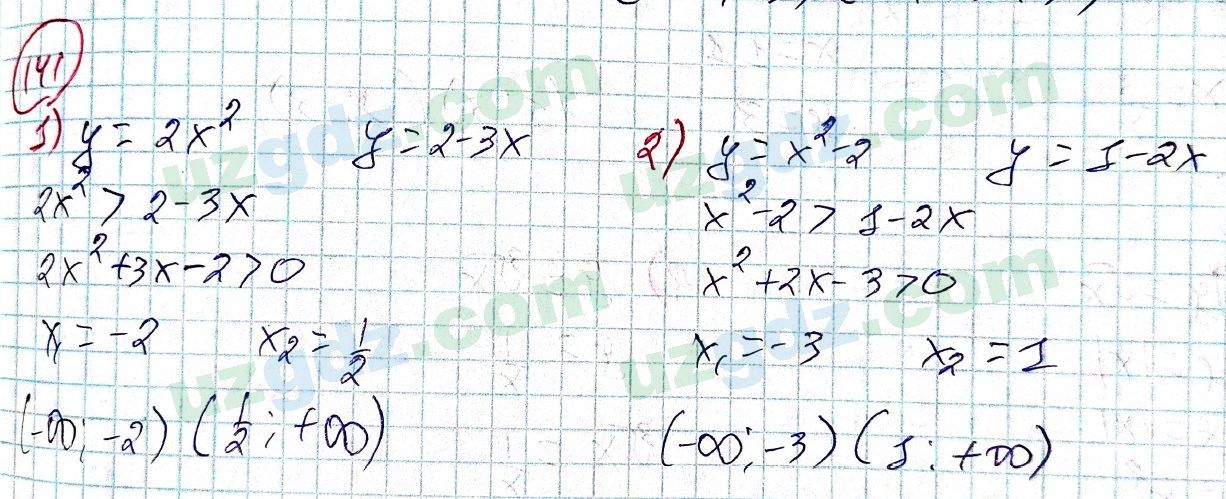 141
1) y = 2x² y = 2-3x
2x² > 2-3x
2x²+3x-2>0
x₁ = -2 x₂ = 1/2
(-∞; -2) (1/2; +∞)
2) y = x²-2 y = 1-2x
x²-2 > 1-2x
x²+2x-3>0
x₁ = -3 x₂ = 1
(-∞; -3) (1; +∞)
uzgdz.com
uzgdz.com
uzgdz.com
uzgdz.com